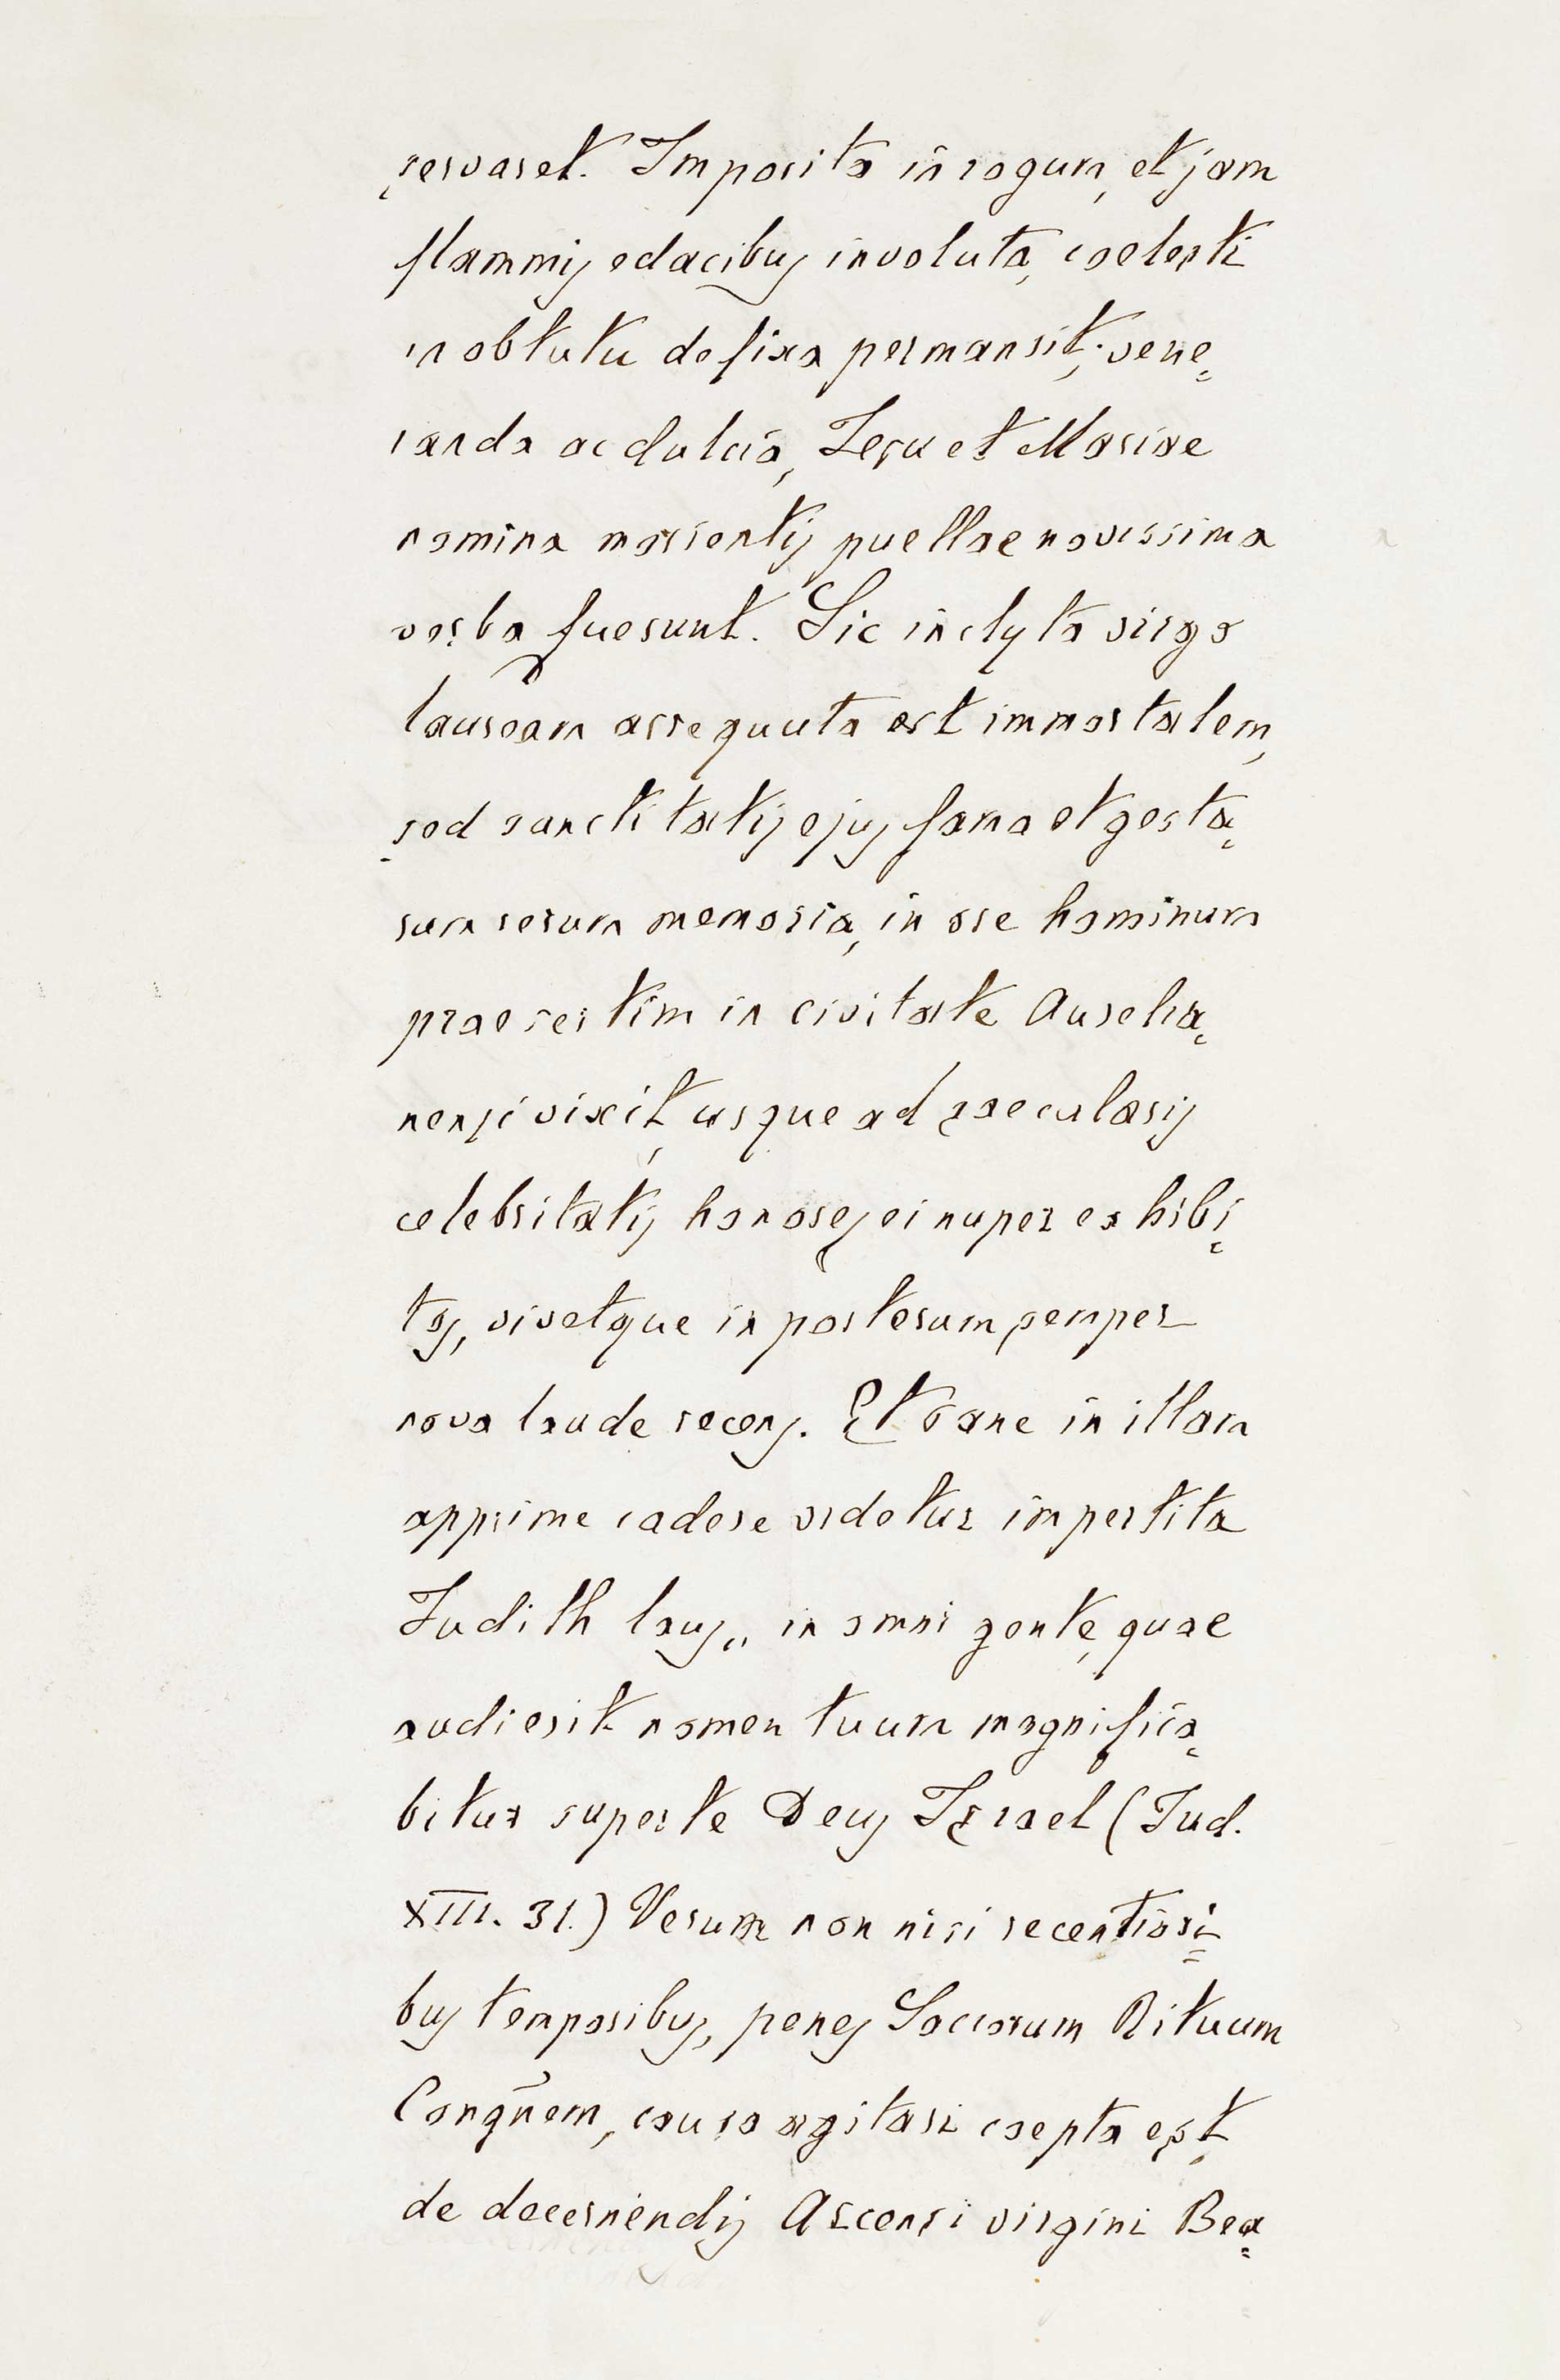 servaret. Imposita in rogum, et jam
flammis edacibus involuta, coelesti
in obtutu defixa permansit; vene=
randa ac dulcia, Iesu et Mariae
nomina morientis puellae novissima
verba fuerunt. Sic inclyta virgo
lauream assequuta est immortalem,
sed sanctitatis ejus fama et gesta=
rum rerum memoria, in ore hominum
praesertim in civitate Aurelia=
nensi vixit, usque ad saecularis
celebritatis honores ei nuper exhibi=
tos, vivetque in posterum semper
nova laude recens. Et sane in illam
apprime cadere videtur impertita
Iudith laus„ in omni gente, quae
audierit nomen tuum magnifica=
bitur super te Deus Israel (Iud.
XIII. 31.) Verum non nisi recentiori=
bus temporibus, penes Sacrorum Rituum
Congñem, causa agitari coepta est,
de decernendis Arcensi virgini Bea=